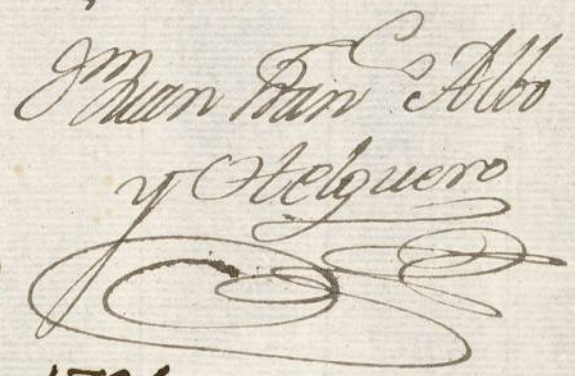 Juan Fran.co Albo
y Helguero